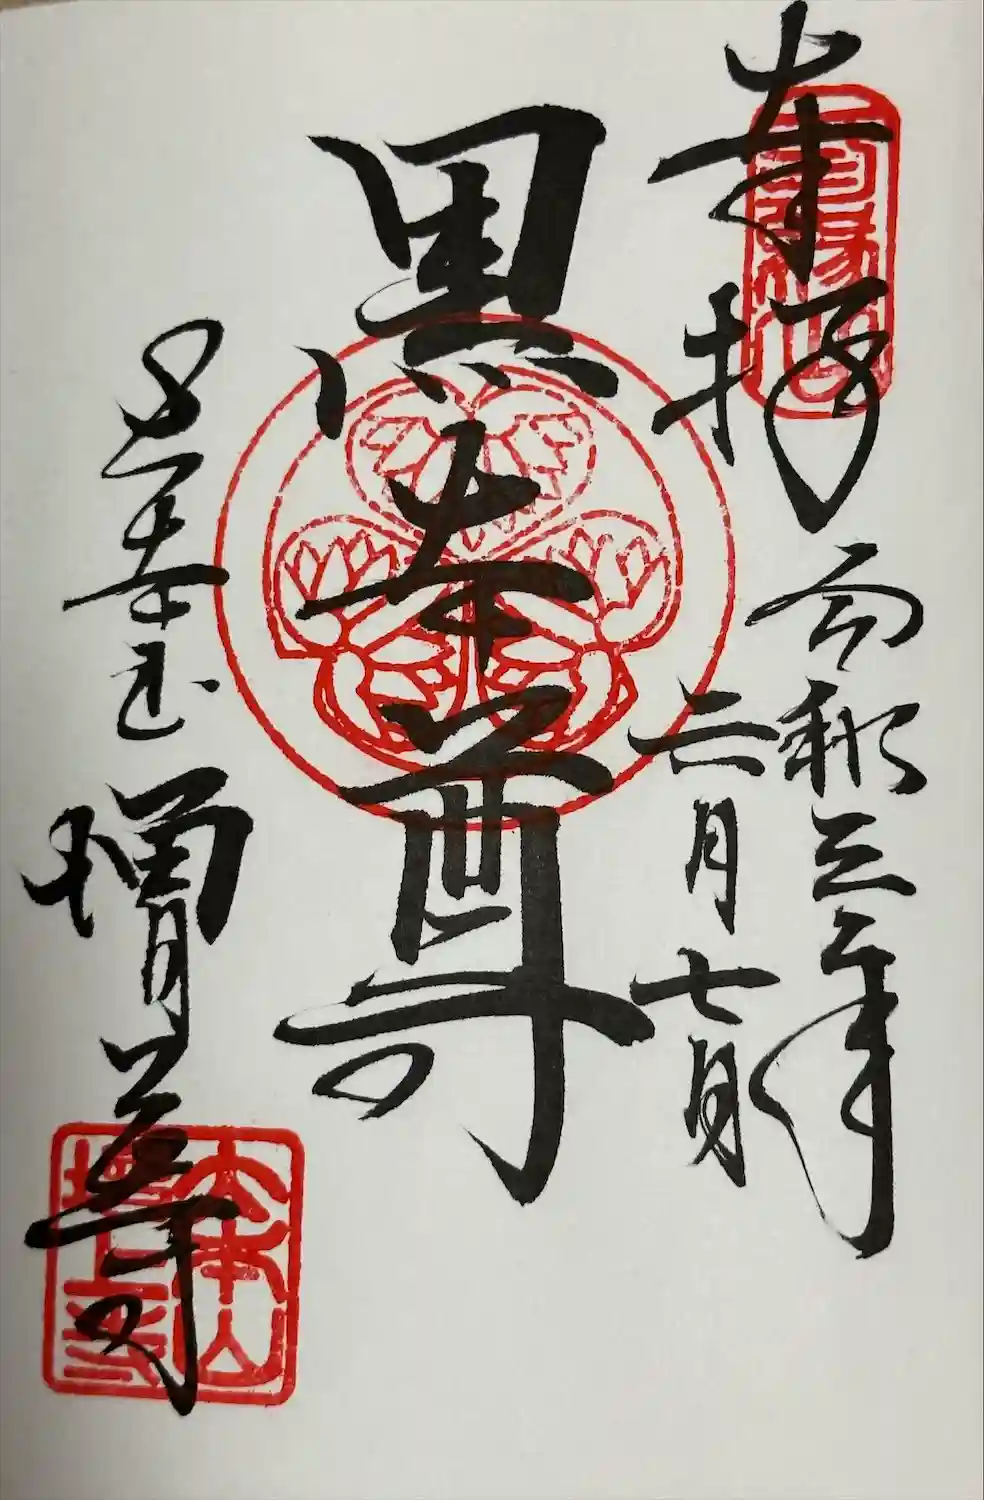 奉拝
令和三年
二月七日
黒本尊
増上寺
大本山
増上寺